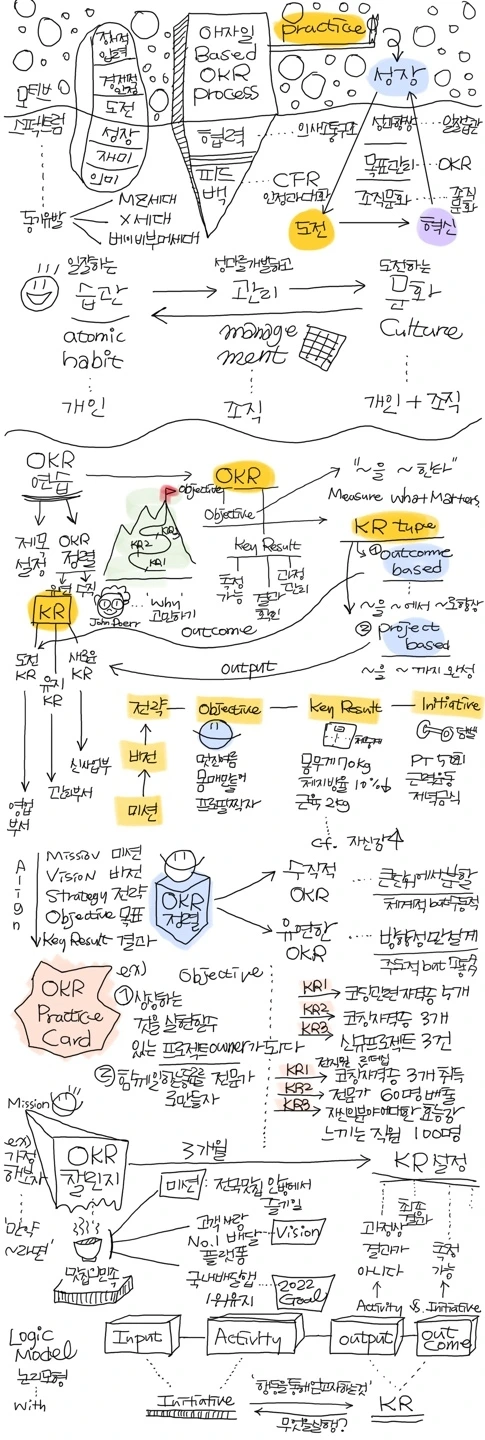 애자일
Based
OKR
process
practice
경제적
압력
도전
성장
재미
의미
모티브
스펙트럼
동기유발
MZ세대
X세대
베이비부머세대
협력
피드
백
의사소통구조
CFR
인정과대화
성장
일습관
목표관리
OKR
조직문화
조직
문화
도전
혁신
일잘하는
습관
성과를개발하고
관리
도전하는
문화
atomic
habit
manage
ment
Culture
개인
조직
개인 + 조직
OKR
연습
OKR
"~을 ~한다"
Measure what Matters
Objective
KR3
KR2
KR1
Objective
Key Result
측정
가능
결과
확인
과정
관리
KR type
① Outcome
based
~을 ~에서 ~로향상
② Project
based
~을 ~까지 완성
제목
설정
OKR
정렬
유연
수직
KR
John Doerr
'Why'
고민하기
outcome
output
도전
KR
유지
KR
새로운
KR
영업
부서
고객부서
신사업부
전략
비전
미션
Objective
멋진여름
몸매만들어
프로필찍자
Key Result
몸무게 70kg
체지방율 10%
근육 2kg
Initiative
방법
PT 50회
근력운동
저녁금식
cf. 자신감
Align
Mission 미션
Vision 비전
Strategy 전략
Objective 목표
Key Result 결과
OKR
정렬
수직적
OKR
큰단위에서분할
체계적 but 경직
유연한
OKR
방향성만설계
주도적 but
OKR
Practice
Card
ex)
Objective
① 성장하는
있는 프로젝트owner가되다
②
전문가
로만들자
KR1
코칭관련자격증 5개
KR2
코칭자격증 3개
KR3
신규프로젝트 3건
KR1
코칭자격증 3개 취득
KR2
전문가 60명 배출
KR3
자신의분야에대한 효능감
느끼는 직원 100명
Mission
ex)
가정
해보자
OKR
잘인지
3개월
KR설정
'만약
~라면'
맛집의민족
미션 : 전국맛집 안방에서
즐기일
고객사랑
No.1 배달
플랫폼
Vision
국내배달앱
1위유지
2022
Goal
과정상
결과가
아니다
최종
결과
측정
가능
Activity vs. Initiative
Logic
Model
논리모형
with
Input
Activity
output
out
come
Initiative
'행동을통해얻고자하는것'
무엇을실행?
KR